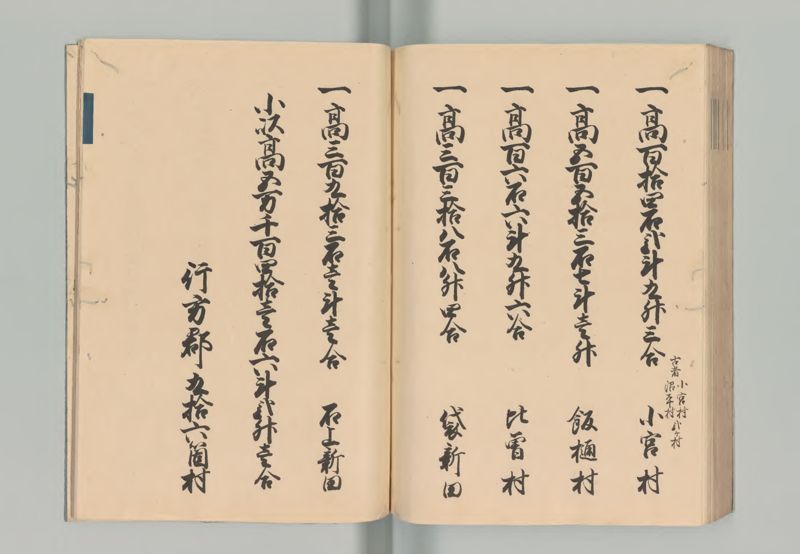 一高百拾四石弐斗九升三合 小宮村
古者小宮村
沼平村弐ヶ村
一高五百五拾三石七斗壱升 飯樋村
一高百六石六斗九升六合 比曽村
一高三百三拾八石八升四合 袋新田
一高三百九拾三石壱斗壱合 石上新田
小以高五万千百四拾壱石六斗弐升壱合
行方郡 九拾六箇村